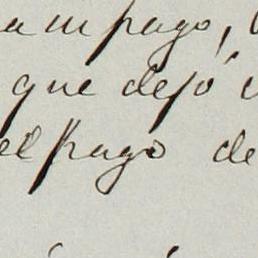 a su pago,
que dejó
el pago de